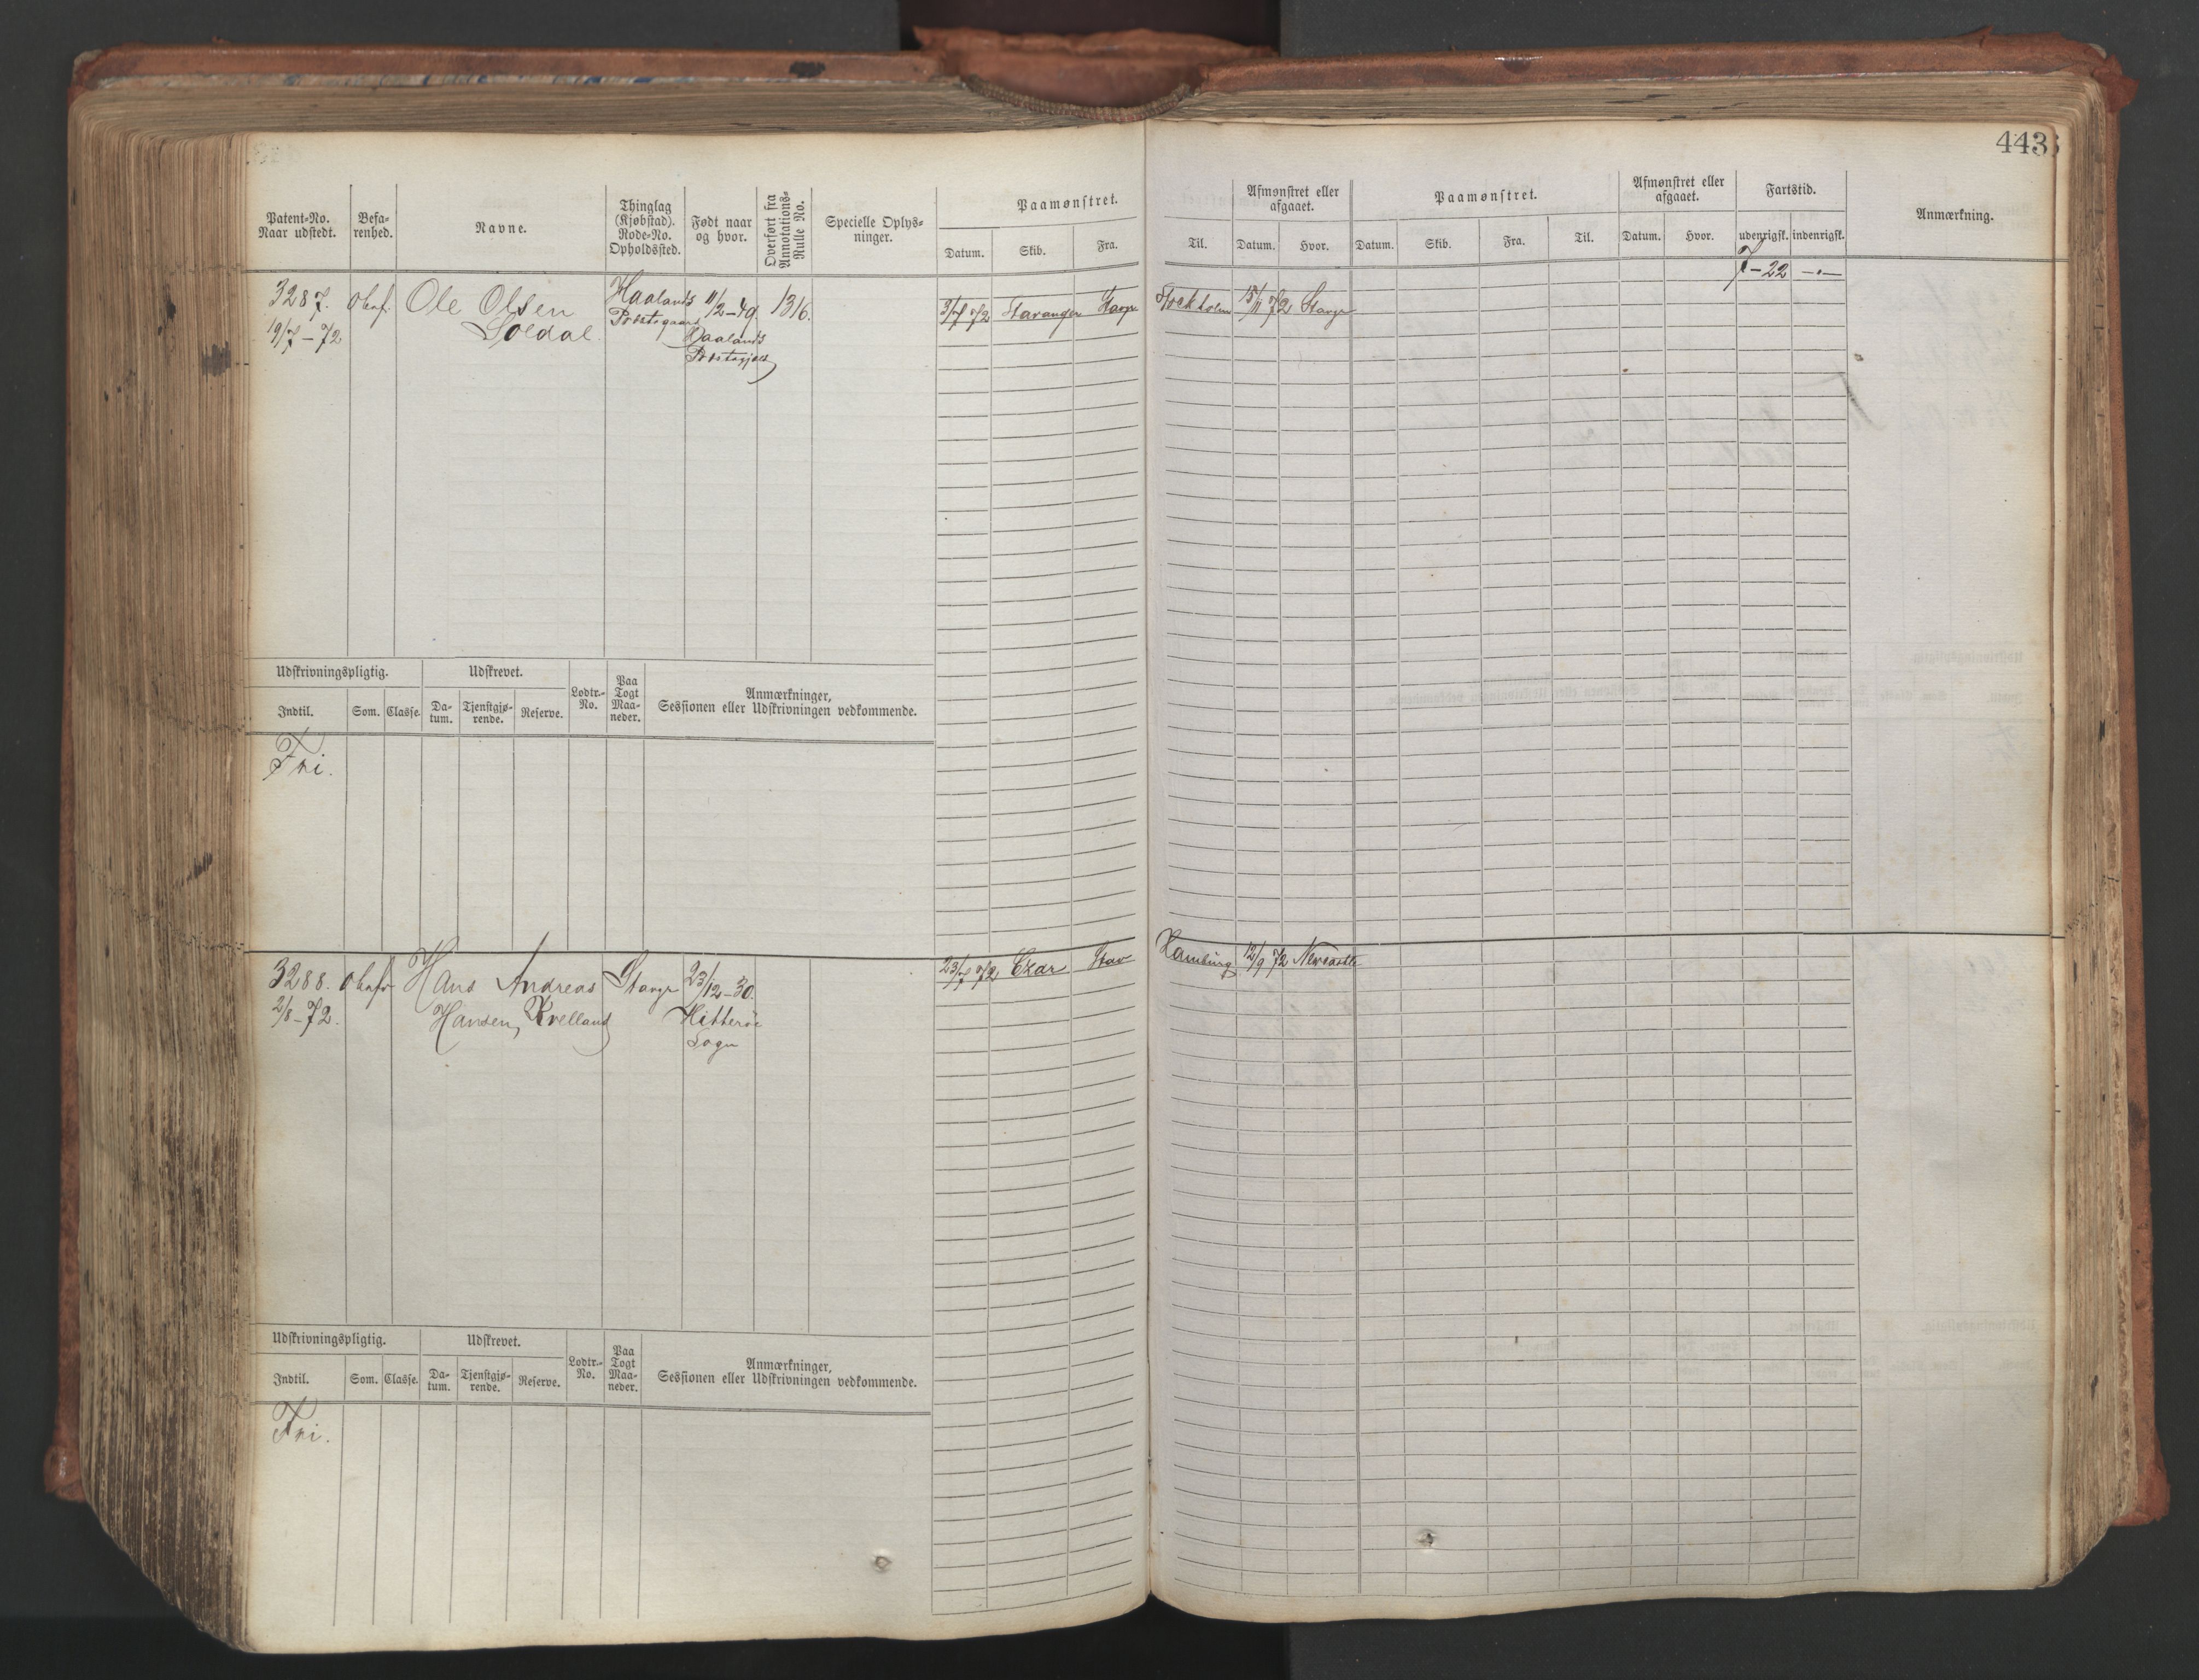 443
Patent-No. Naar udstedt.
Befa-renhed.
Navne.
Thinglag (Kjøbstad). Rode-No. Opholdssted.
Født naar og hvor.
Overført fra Annotations-Rulle No.
Specielle Oplys-ninger.
Paamønstret.
Datum. Skib. Fra. Til.
Afmønstret eller afgaaet.
Datum. Hvor.
Paamønstret.
Datum. Skib. Fra. Til.
Afmønstret eller afgaaet.
Datum. Hvor.
Fartstid.
udenrigsk. indenrigsk.
Anmærkning.
7-22 -"-
3287. Ole Olsen Haalands 11/2-49 1316. 3/7 72 Stavanger Stavgr Stockholm 15/11 72 Stavgr
19/7-72 Soldal Præstegaard Haalands
Præstegjeld
Udskrivningspligtig. Udskrevet. Lodtr.-No. Paa Togt Maa-neder.
Anmærkninger,
Sessionen eller Udskrivningen vedkommende.
Indtil. Som. Classe. Da-tum. Tjenstgjø-rende. Reserve.
Fri.
3288. Hans Andreas Stavgr 23/12-30. 23/7 72 Czar Stav Hamburg 12/9 72 Newcastle
2/8-72. Hansen, Kvelland Hitterøe
Sogn
Udskrivningspligtig. Udskrevet. Lodtr.-No. Paa Togt Maa-neder.
Anmærkninger,
Sessionen eller Udskrivningen vedkommende.
Indtil. Som. Classe. Da-tum. Tjenstgjø-rende. Reserve.
Fri.